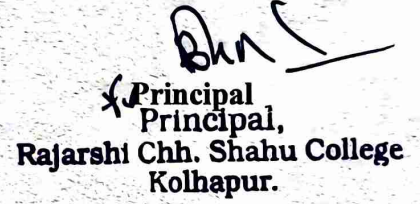 Principal
Principal,
Rajarshi Chh. Shahu College
Kolhapur.